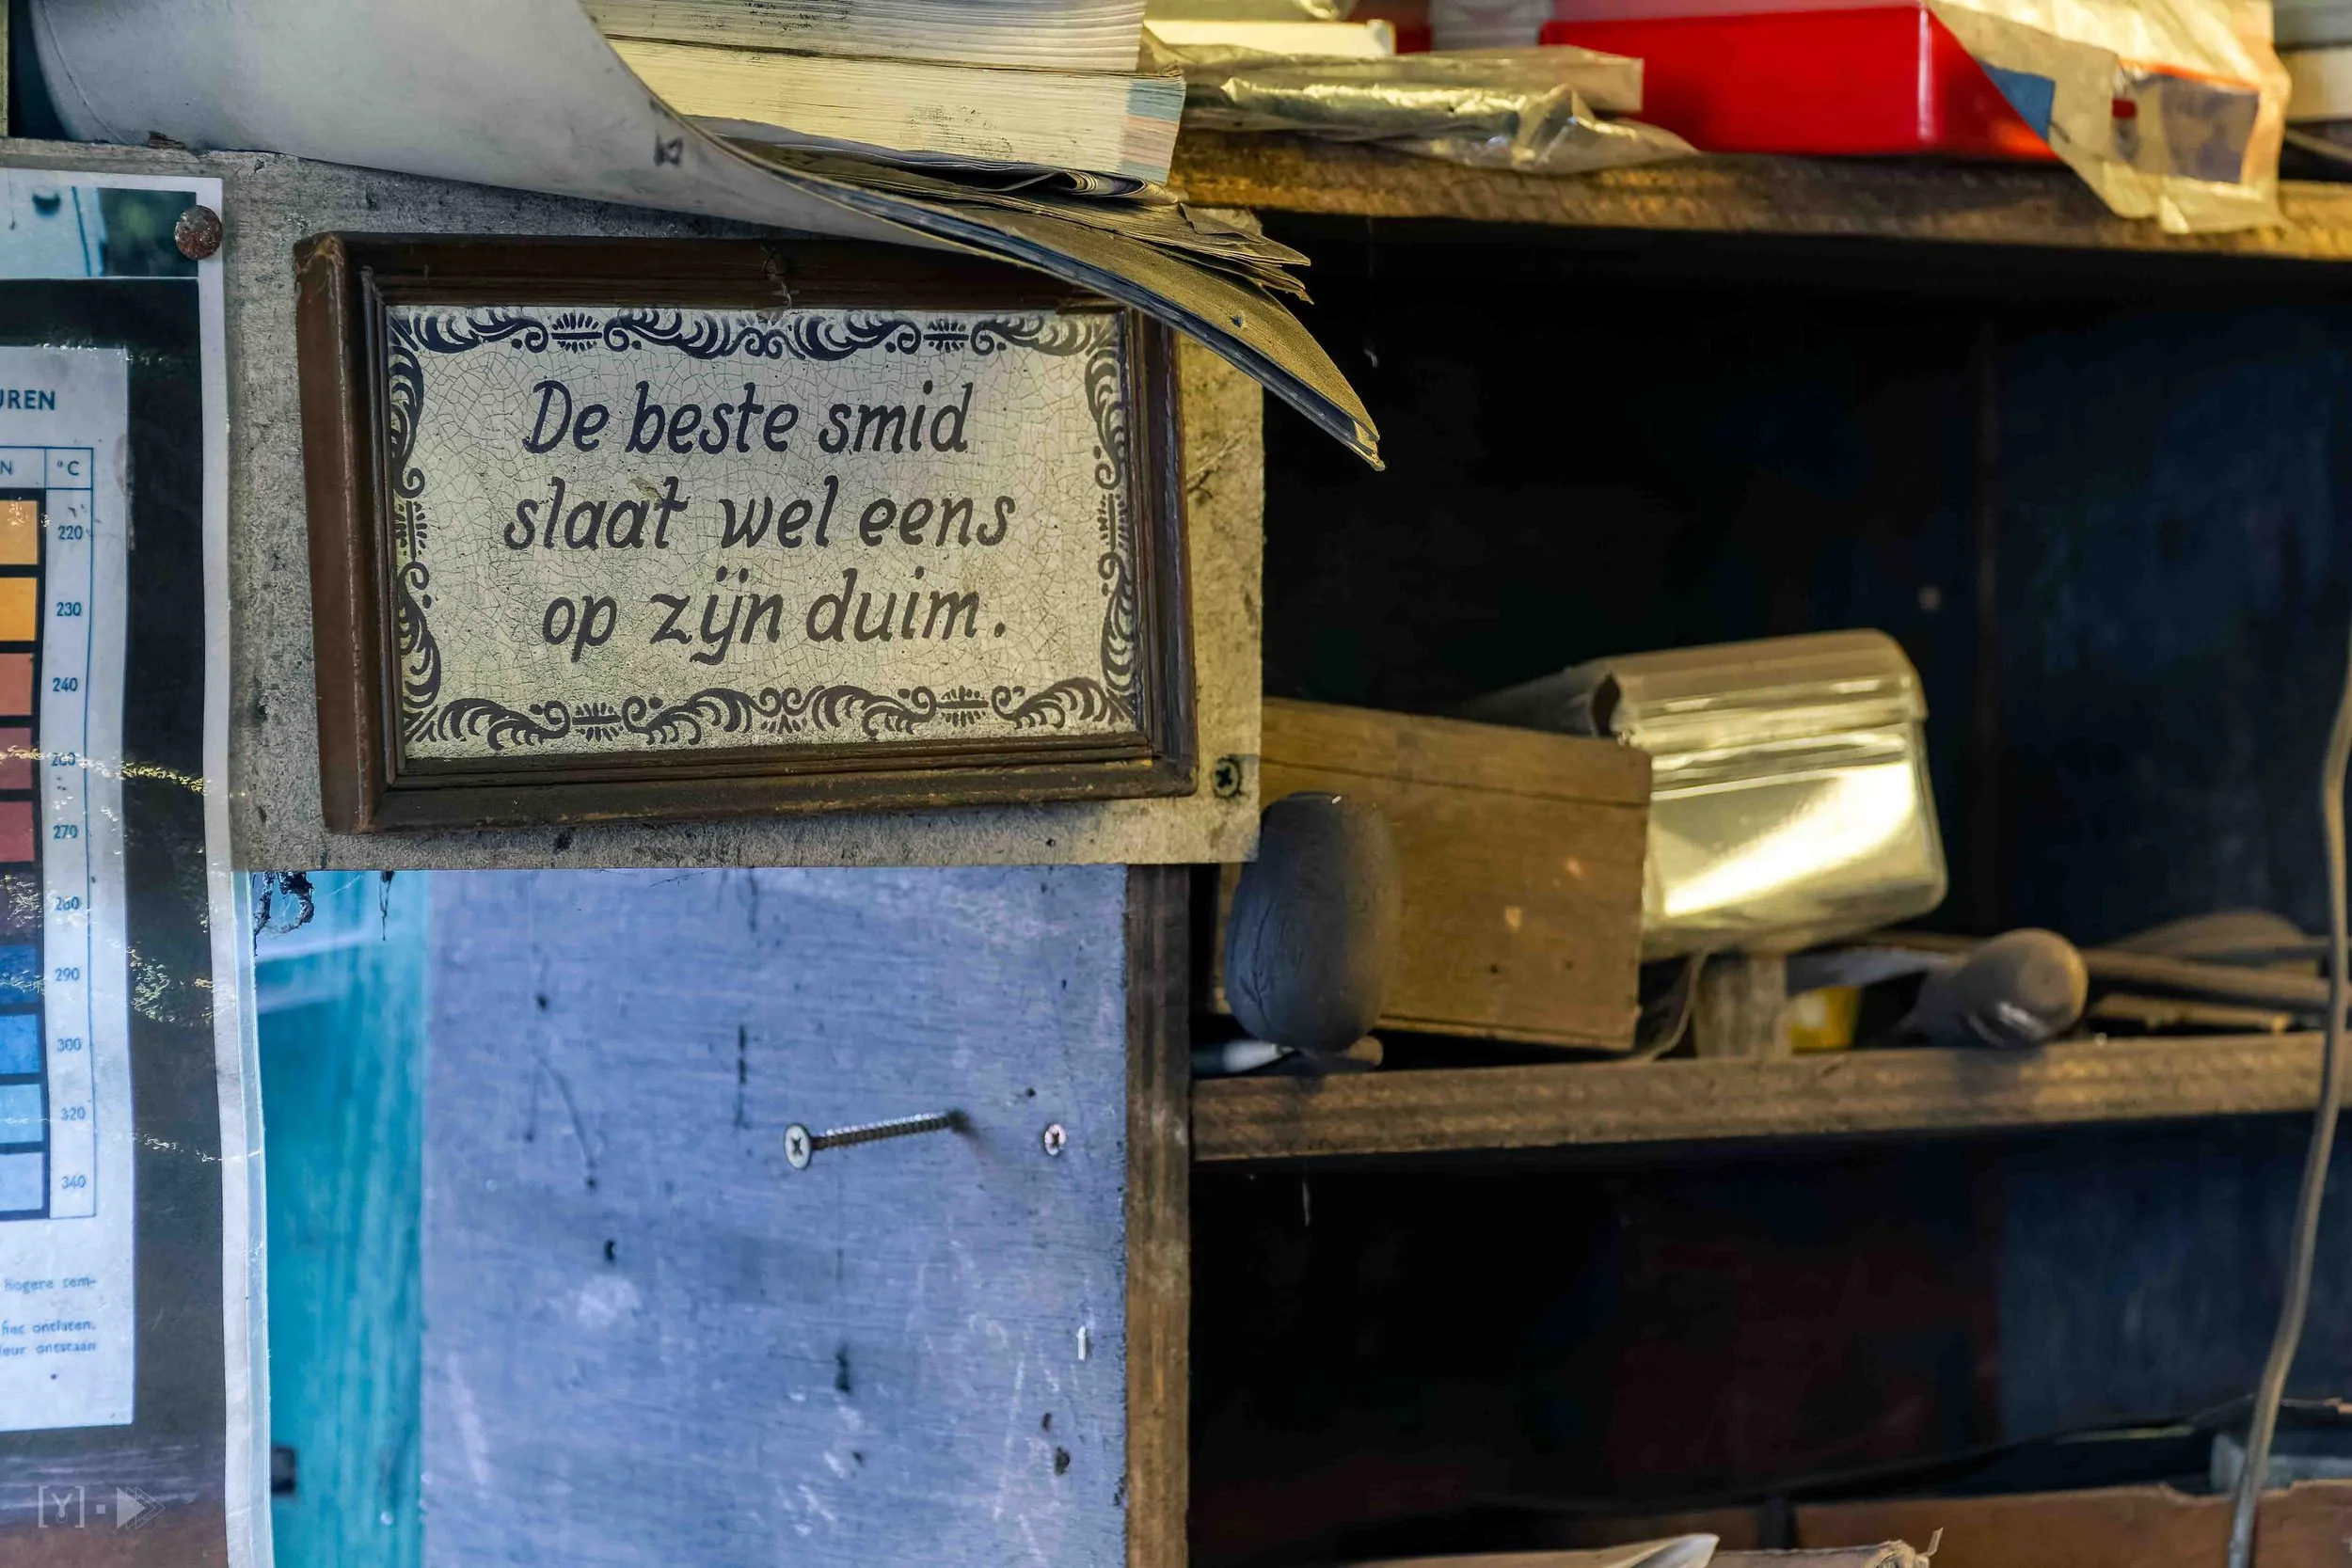 De beste smid
slaat wel eens
op zijn duim.
UREN
N °C
220
230
240
260
270
280
290
300
320
340
hogere tem-
het ontlaten.
leur ontstaan
[Y]